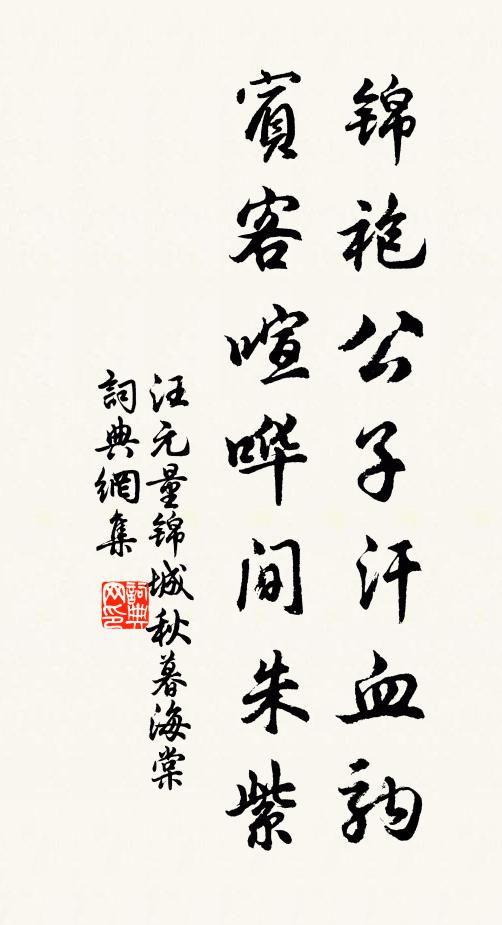 锦袍公子汗血駒
賓客喧哗间朱紫
汪元量锦城秋暮海棠
詞典網集
詞典
网印